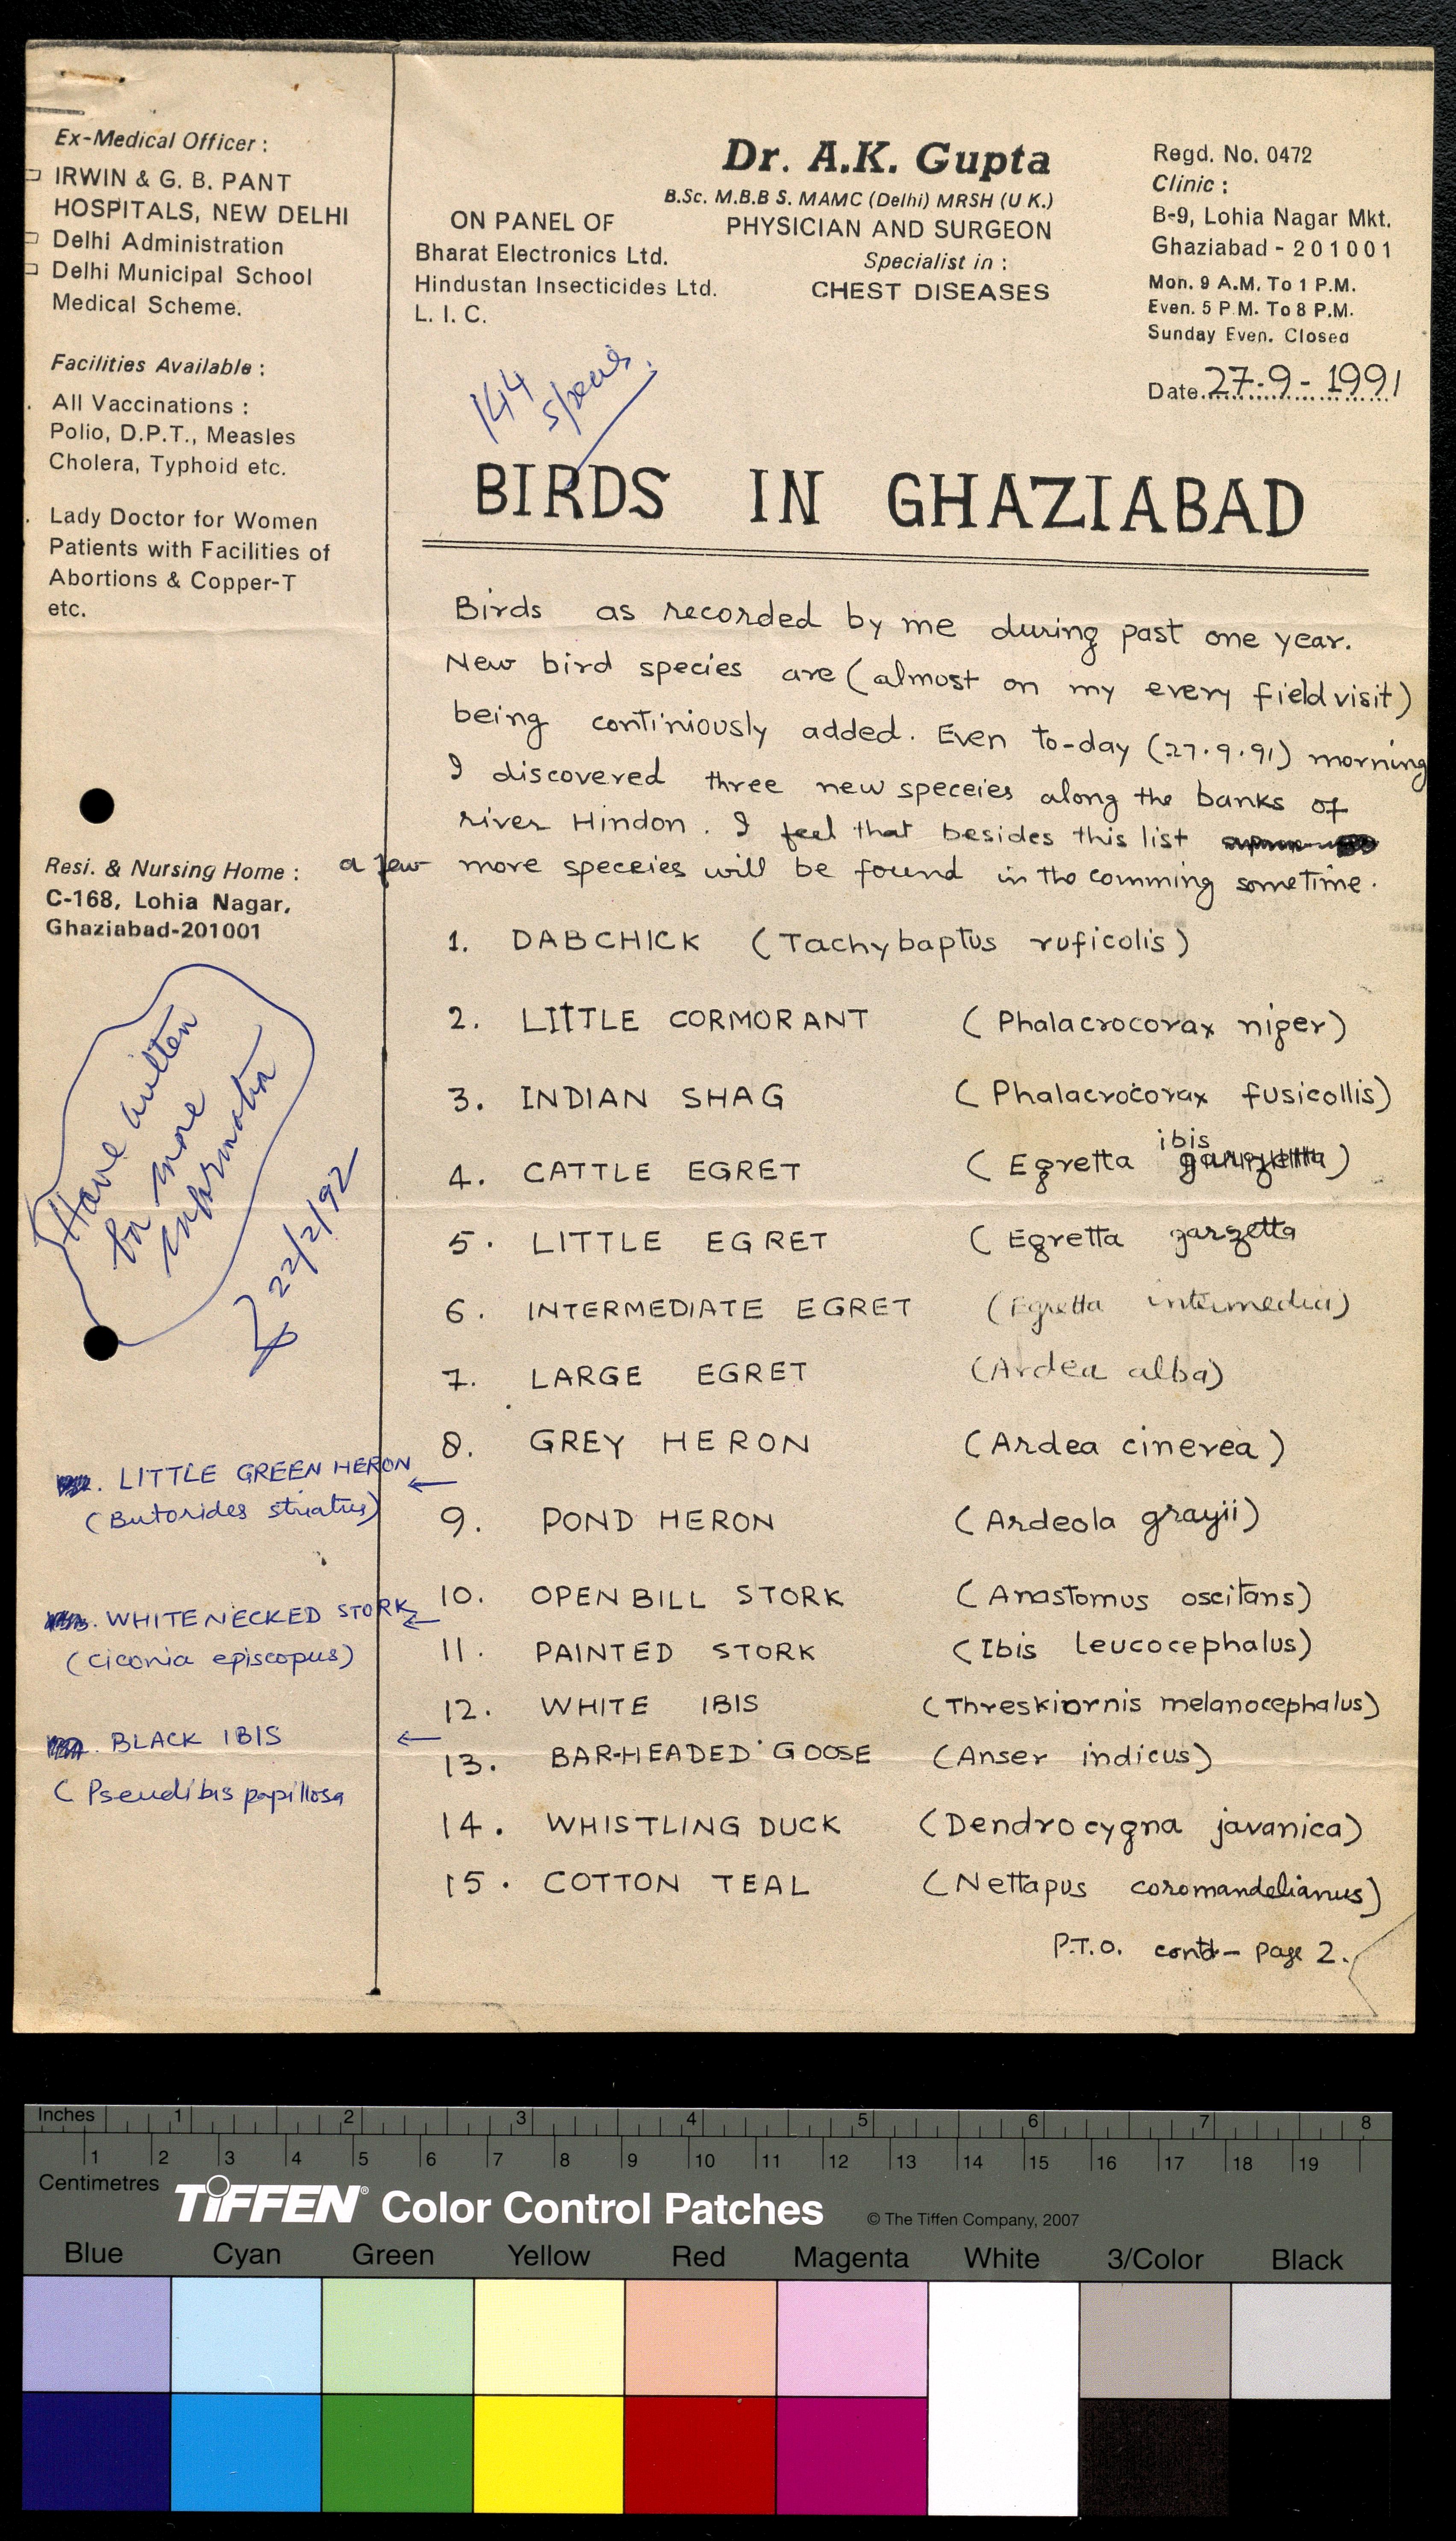 Ex-Medical Officer :
IRWIN & G. B. PANT
HOSPITALS, NEW DELHI
Delhi Administration
Delhi Municipal School
Medical Scheme.
Facilities Available :
All Vaccinations :
Polio, D.P.T., Measles
Cholera, Typhoid etc.
Lady Doctor for Women
Patients with Facilities of
Abortions & Copper-T
etc.
Resi. & Nursing Home :
C-168, Lohia Nagar,
Ghaziabad-201001
ON PANEL OF
Bharat Electronics Ltd.
Hindustan Insecticides Ltd.
L. I. C.
Dr. A.K. Gupta
B.Sc. M.B.B S. MAMC (Delhi) MRSH (U K.)
PHYSICIAN AND SURGEON
Specialist in :
CHEST DISEASES
Regd. No. 0472
Clinic :
B-9, Lohia Nagar Mkt.
Ghaziabad - 201001
Mon. 9 A.M. To 1 P.M.
Even. 5 P.M. To 8 P.M.
Sunday Even. Closed
Date 27-9-1991
144
BIRDS IN GHAZIABAD
Birds as recorded by me during past one year.
New bird species are (almost on my every field visit)
being continiously added. Even to-day (27.9.91) morning
I discovered three new speceies along the banks of
river Hindon. I feel that besides this list
a few more speceies will be found in the comming sometime.
1. DABCHICK (Tachybaptus ruficolis)
2. LITTLE CORMORANT (Phalacrocorax niger)
3. INDIAN SHAG (Phalacrocorax fusicollis)
4. CATTLE EGRET (Egretta ibis)
5. LITTLE EGRET (Egretta garzetta
6. INTERMEDIATE EGRET (Egretta intermedia)
7. LARGE EGRET (Ardea alba)
8. GREY HERON (Ardea cinerea)
9. POND HERON (Ardeola grayii)
10. OPEN BILL STORK (Anastomus oscitans)
11. PAINTED STORK (Ibis leucocephalus)
12. WHITE IBIS (Threskiornis melanocephalus)
13. BAR-HEADED GOOSE (Anser indicus)
14. WHISTLING DUCK (Dendrocygna javanica)
15. COTTON TEAL (Nettapus coromandelianus)
P.T.O. contd- page 2.
Have written
for more
information
22/2/92
LITTLE GREEN HERON ←
(Butorides striatus)
WHITE NECKED STORK ←
(ciconia episcopus)
BLACK IBIS ←
(Pseudibis papillosa
Inches 1 2 3 4 5 6 7 8
1 2 3 4 5 6 7 8 9 10 11 12 13 14 15 16 17 18 19
Centimetres
TIFFEN® Color Control Patches © The Tiffen Company, 2007
Blue Cyan Green Yellow Red Magenta White 3/Color Black